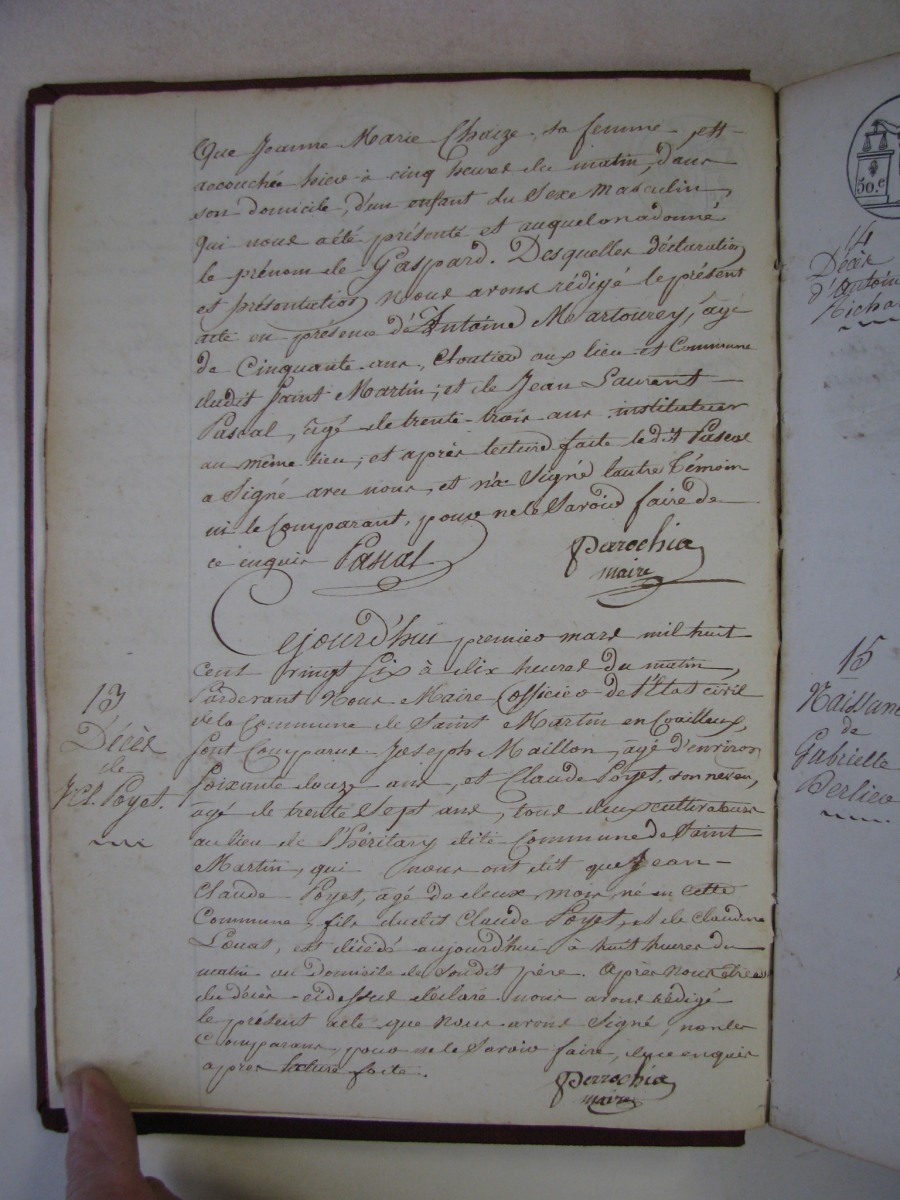 Que Jeanne Marie Chaize, sa femme, est
accouchée hier à cinq heures du matin, dans
son domicile, d'un enfant du Sexe Masculin,
qui nous a été présenté et auquel on a donné
le prénom de Gaspard. Desquelles déclaration
et présentation Nous avons rédigé le présent
acte en présence d'Antoine Martourey, âgé
de Cinquante ans, Cloutier aux lieu et Commune
dudit Saint Martin; et de Jean Laurent
Pascal, âgé de trente-trois ans instituteur
au même lieu; et après lecture faite ledit Pascal
a Signé avec nous, et n'a Signé l'autre témoin
ni le Comparant, pour ne le Savoir faire de
ce enquis Pascal Parrochia
maire
Cejourd'hui premier mars mil huit
cent vingt Six à dix heures du matin,
Pardevant Nous Maire Officier de l'Etat civil
de la Commune de Saint Martin en Coailleux,
Sont Comparus Joseph Maillon, âgé d'environ
Soixante douze ans, et Claude Poyet, son neveu,
âgé de trente Sept ans, tous deux cultivateurs
au lieu de l'Héritary dite Commune de Saint
Martin, qui nous ont dit que Jean-
Claude Poyet, âgé de deux mois, né en cette
Commune, fils dudit Claude Poyet, et de Claudine
Louat, est décédé aujourd'hui à huit heures du
matin au Domicile de Sondit père. Après nous être
du décès ci-dessus déclaré nous avons rédigé
le présent acte que Nous avons Signé, non les
Comparans, pour ne le Savoir faire, de ce enquis
après lecture faite.
Parrochia
maire
13
Décès
de
J. Cl. Poyet.
50.c
14
Décès
d'Antoine
15
de
Gabrielle
Berlier